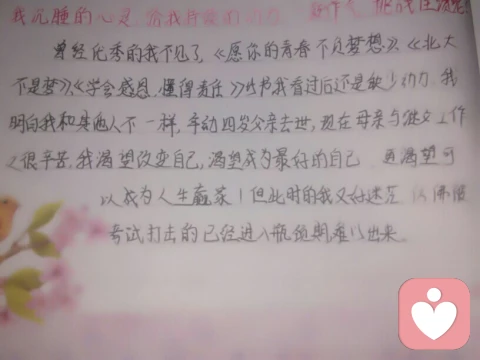 我沉睡的心灵 给我奋发的动力
曾经优秀的我不见了,《愿你的青春不负梦想》、《北大
不是梦》《学会感恩,懂得责任》的书我看过后还是缺少动力,我
明白我和其他人不一样,年幼四岁父亲去世,现在母亲与继父工作
很辛苦,我渴望改变自己,渴望成为最好的自己 更渴望可
以成为人生赢家!但此时的我又好迷茫 仿佛被
考试打击的已经进入瓶颈期难以出来